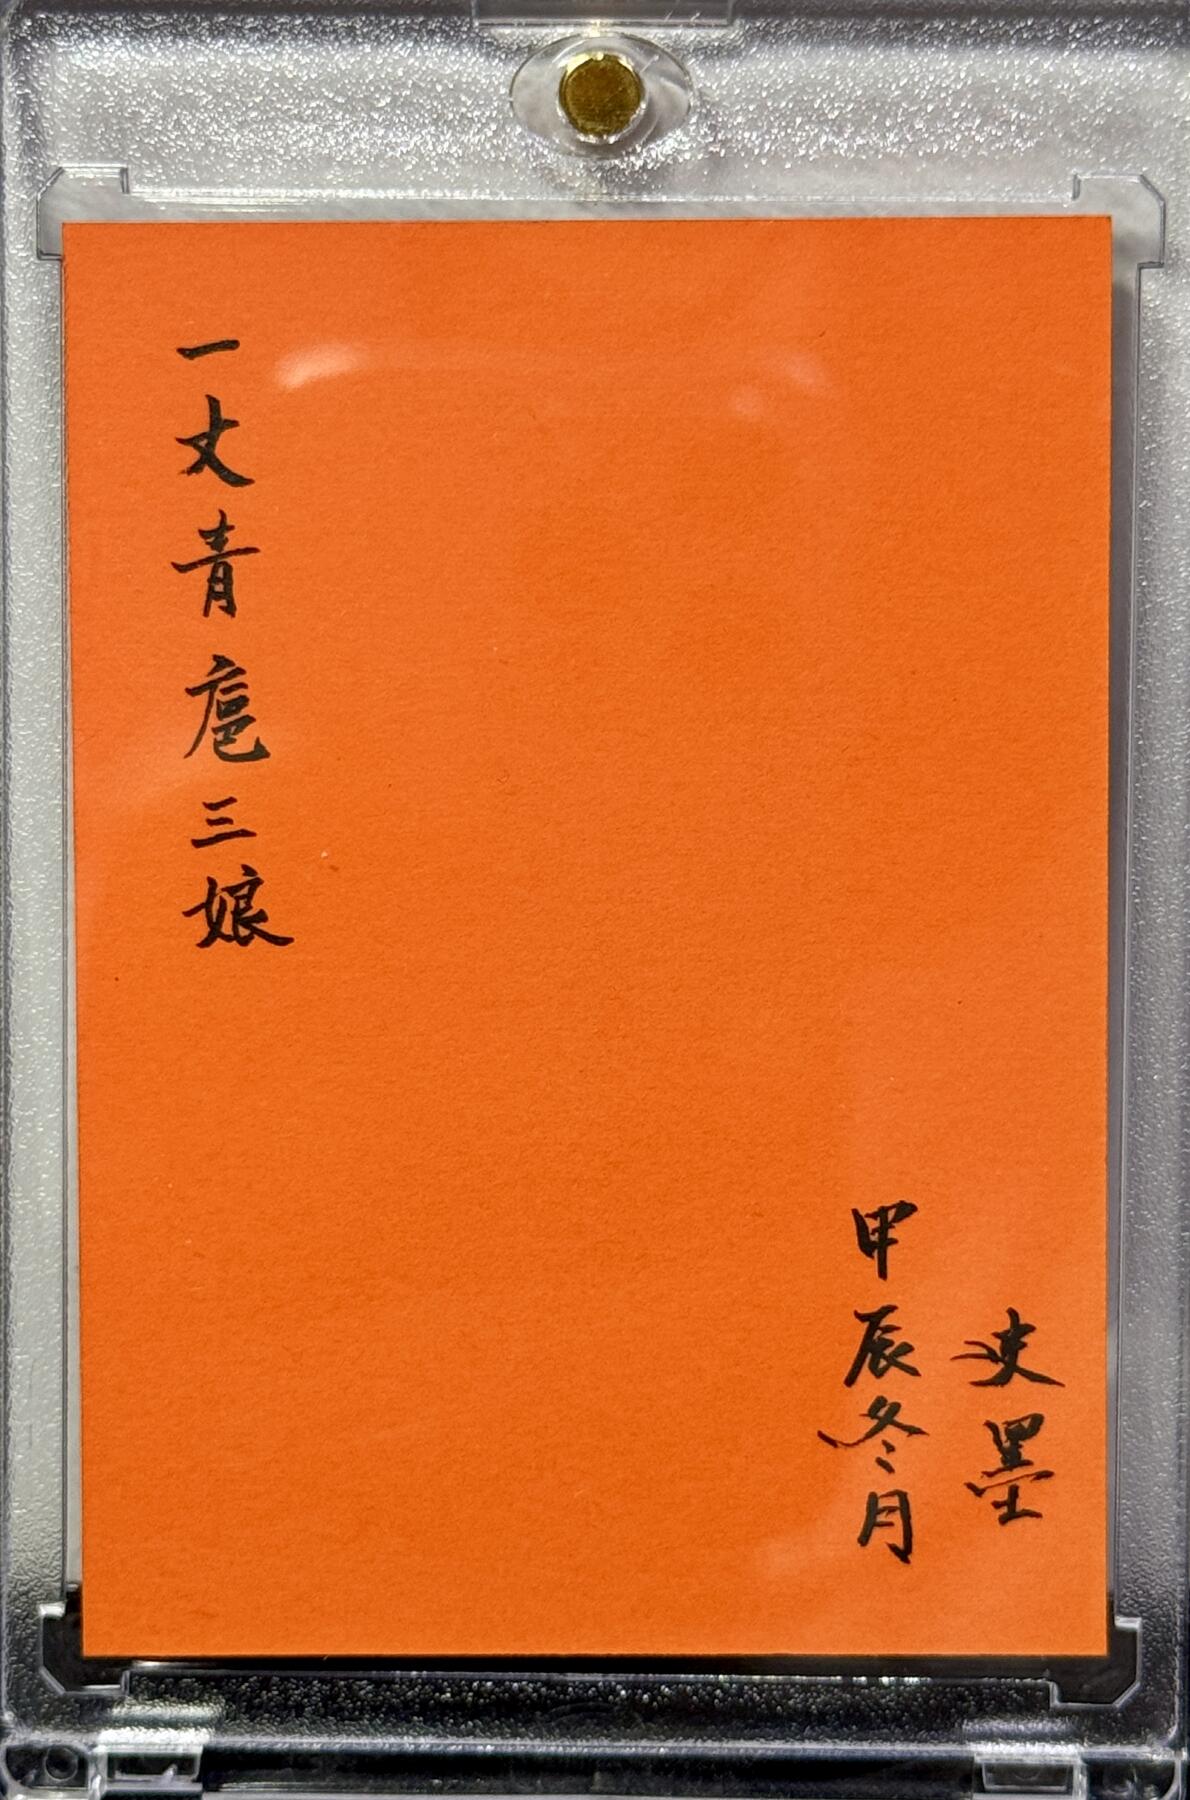 一丈青扈三娘
甲辰冬月
史墨